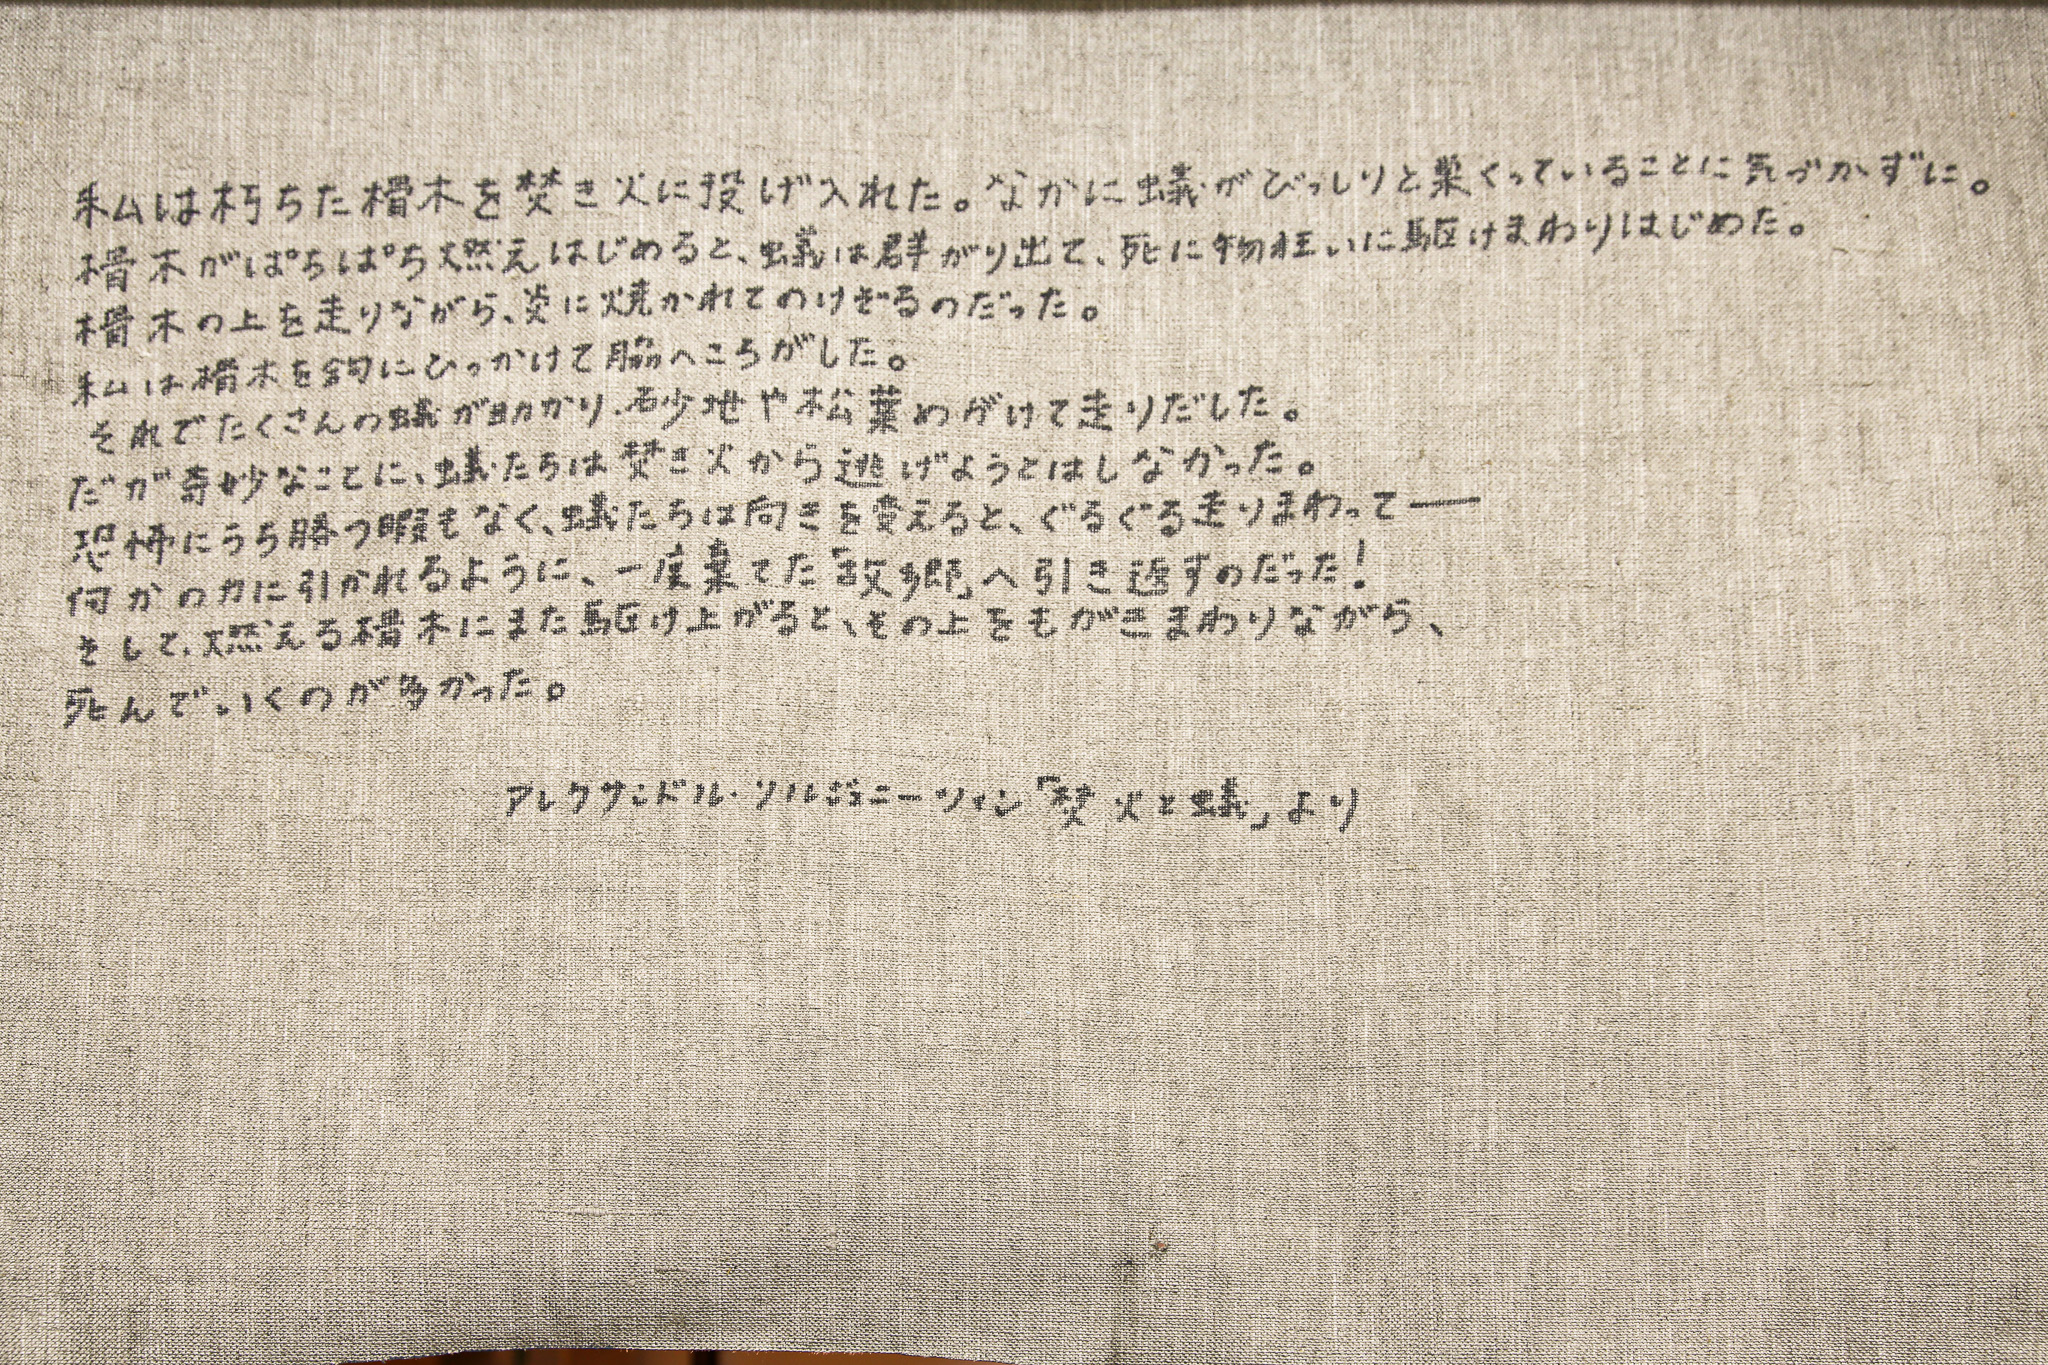 私は朽ちた榾木を焚き火に投げ入れた。なかに蟻がびっしりと巣くっていることに気づかずに。
榾木がぱちぱち燃えはじめると、蟻は群がり出て、死に物狂いに駆けまわりはじめた。
榾木の上を走りながら、炎に焼かれてのけぞるのだった。
私は榾木を鉤にひっかけて脇へころがした。
それでたくさんの蟻が助かり、砂地や松葉めがけて走りだした。
だが奇妙なことに、蟻たちは焚き火から逃げようとはしなかった。
恐怖にうち勝つ暇もなく、蟻たちは向きを変えると、ぐるぐる走りまわって——
何かの力に引かれるように、一度棄てた「故郷」へ引き返すのだった!
そして、燃える榾木にまた駆け上がると、その上をもがきまわりながら、
死んでいくのが多かった。
アレクサンドル・ソルジェニーツィン「焚火と蟻」より